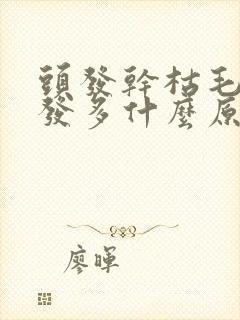 頭發幹枯毛
發多什麼原
廖暉